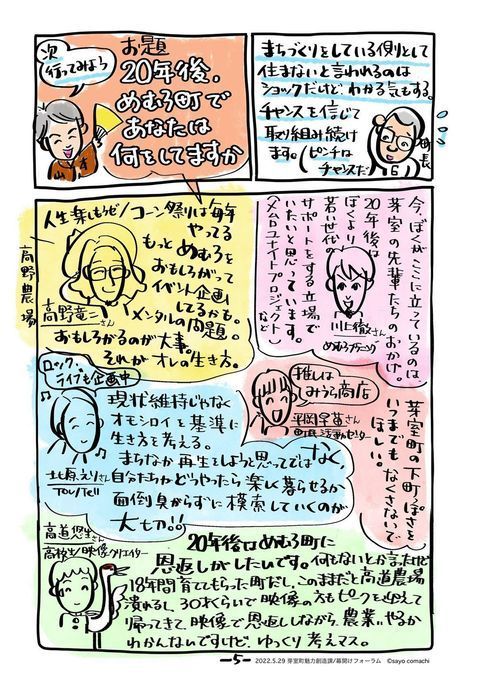 次
行ってみよう
お題
20年後、
めむろ町で
あなたは
何をしてますか
まちづくりをしている側として
住まないと言われるのは
ショックだけど、わかる気もする。
チャンスを信じて
取り組み続け
ます。(ピンチは
チャンスだ)
町長
人生楽しもうゼ!
コーン祭りは毎年
やってる
もっとめむろを
おもしろがって
イベント企画
してるかも。
メンタルの問題。
おもしろがるのが大事。
それがオレの生き方。
高野農場
高野竜二さん
今、ぼくがここに立っているのは
芽室の先輩たちのおかげ。
20年後は
ぼくより
若い世代の
サポートをする立場で
いたいと思っています。
(メムロユナイトプロジェクト)
など
川上徹さん
めむろプランニング
ロック、
ライブも企画中
現状維持じゃなく
オモシロイを基準に
生き方を考える。
まちなか再生をしようと思ってではなく、
自分たちがどうやったら楽しく暮らせるか
面倒臭がらずに模索していくのが
大切!!
北原えりさん
TOU/TeU
推しは
みうら商店
平岡早苗さん
町民活動センター
芽室町の下町っぽさを
いつまでもなくさないで
ほしい。
高道悠生さん
高校生/映像クリエイター
20年後はめむろ町に
恩返ししたいです。何もないとか言ったけど
18年間育ててもらった町だし、このままだと高道農場
潰れるし、30くらいで映像の方もピークを迎えて
帰ってきて、映像で恩返ししながら、農業、やるか
わかんないですけど、ゆっくり考えマス。
-5-
2022.5.29 芽室町魅力創造課/幕開けフォーラム ©sayo comachi